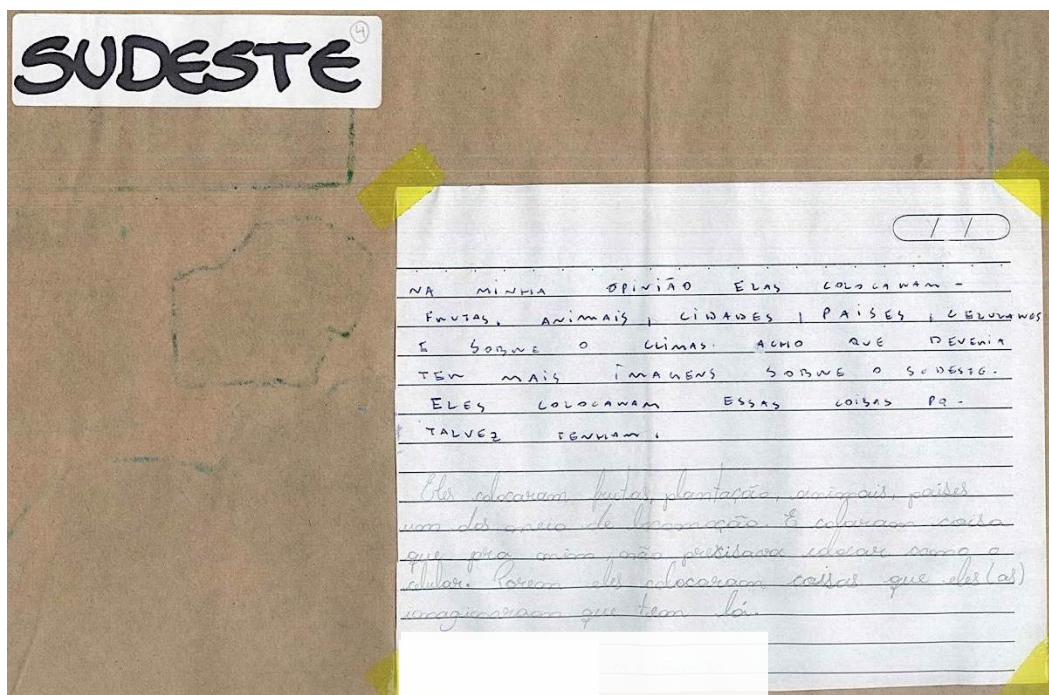 SUDESTE
4
/ /
NA MINHA OPINIÃO ELAS COLOCARAM -
FRUTAS, ANIMAIS, CIDADES, PAÍSES, CELULARES
E SOBRE O CLIMAS. ACHO QUE DEVERIA
TER MAIS IMAGENS SOBRE O SUDESTE.
ELES COLOCARAM ESSAS COISAS PQ.
TALVEZ TENHAM.
Eles colocaram frutas, plantação, animais, países
um dos meio de locomoção. E colaram coisa
que pra mim não presisava colocar como o
celular. Porem eles colocaram coisas que eles(as)
imaginaram que tem lá.